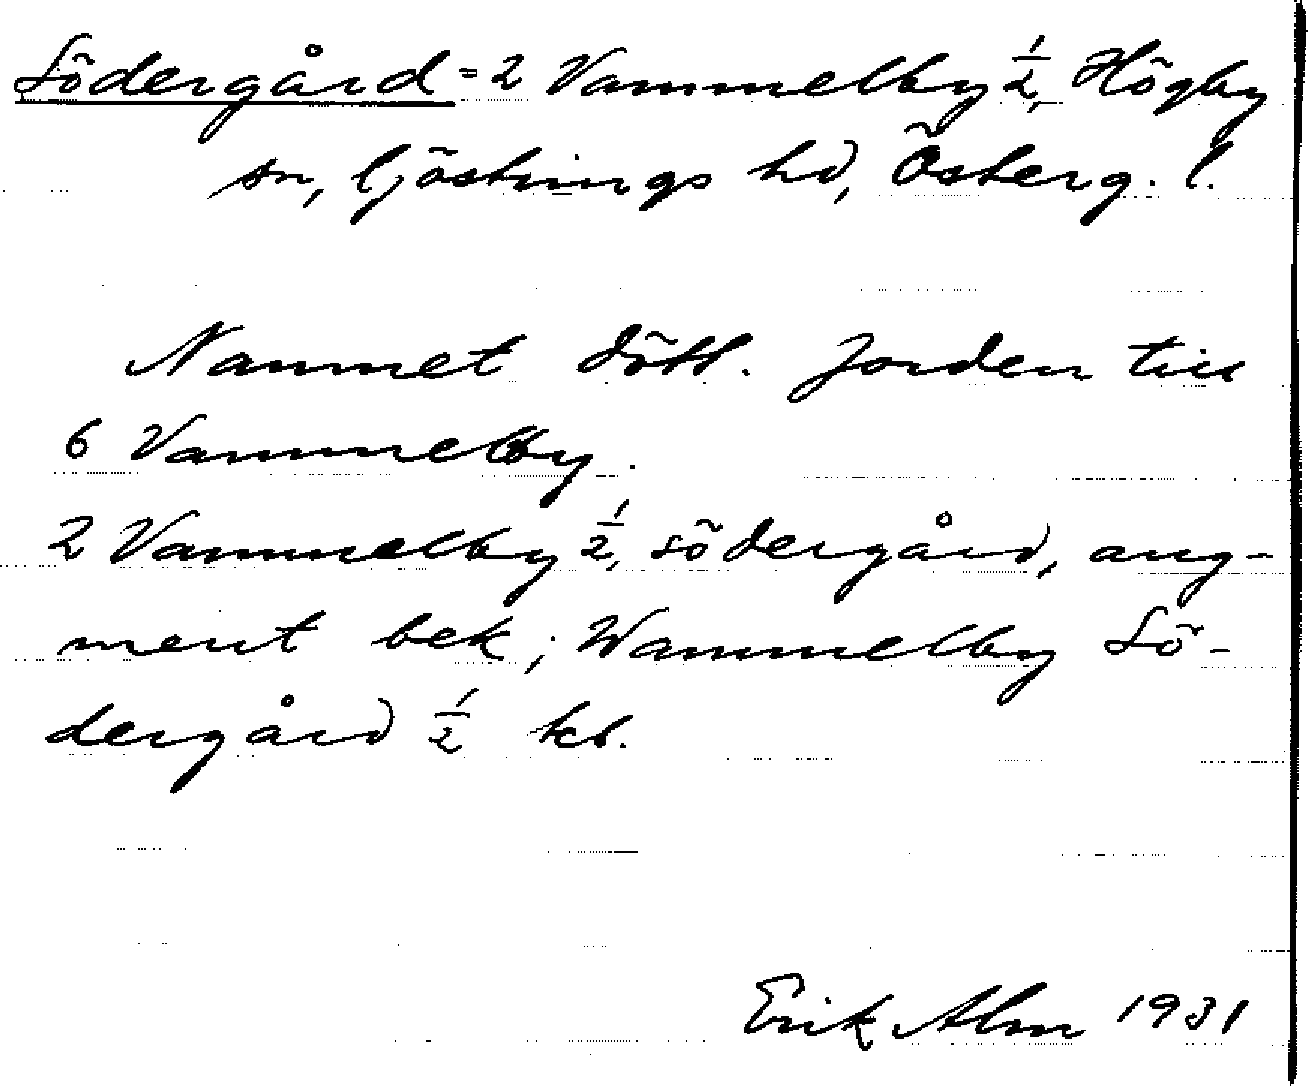 Södergård = 2 Vammelby 1/2, Högby
sn, Göstrings hd, Österg. l.
Namnet dött. Jorden till
6 Vammelby.
2 Vammelby 1/2, södergård, aug-
ment bek; Wammelby Sö-
dergård 1/2 kb.
Erik Alm 1931